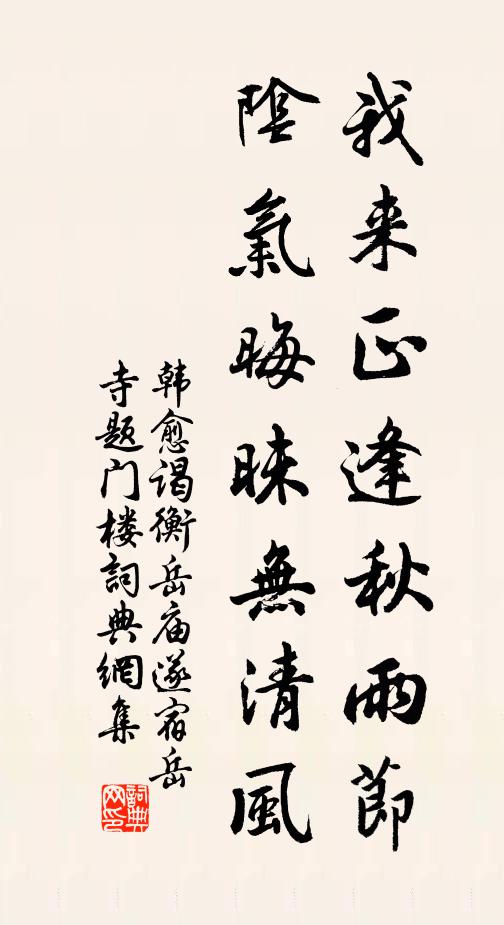 我来正逢秋雨節
陰氣晦昧無清風
韩愈谒衡岳庙遂宿岳
寺题门楼詞典網集
詞典网印